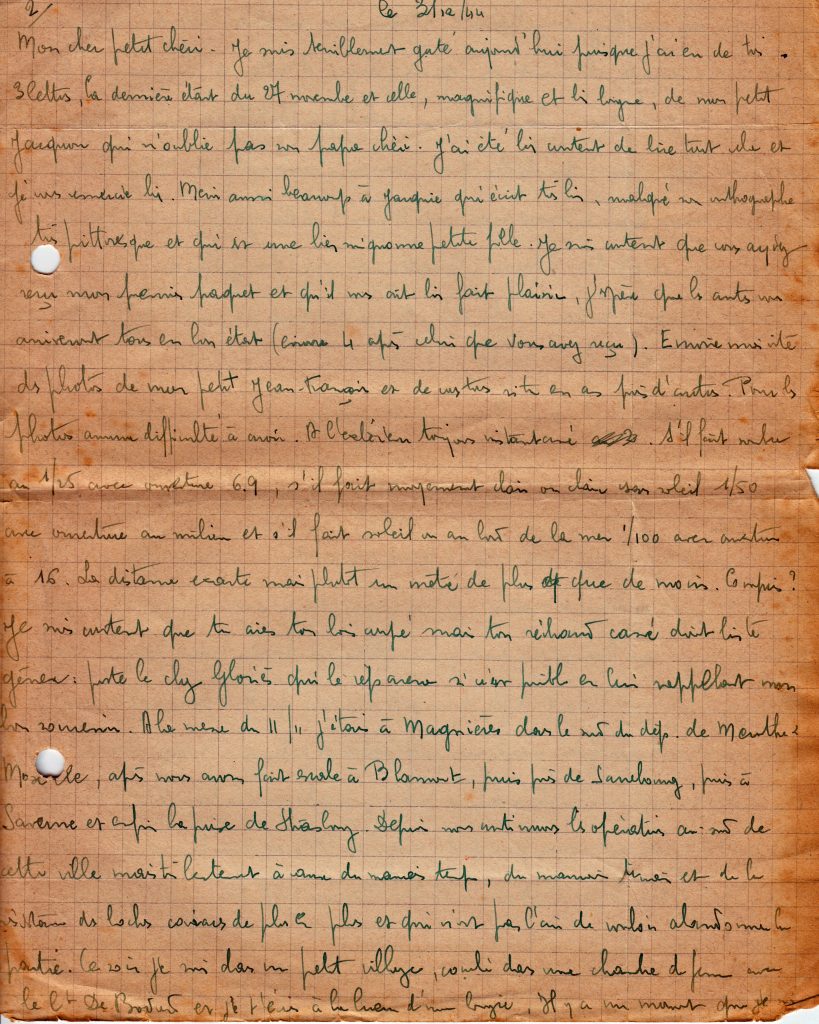 2/ le 3/12/44
Mon cher petit chéri. Je suis terriblement gâté aujourd'hui puisque j'ai eu de toi
3 lettres, la dernière étant du 27 novembre et celle, magnifique et bi longue, de mon petit
Jacquou qui n'oublie pas son papa chéri. J'ai été bi content de lire tout cela et
je vous remercie bi. Merci aussi beaucoup à Jacquie qui écrit très bi, malgré son orthographe
très pittoresque et qui est une bien mignonne petite fille. Je suis content que vous ayez
reçu mon premier paquet et qu'il vous ait bi fait plaisir, j'espère que les autres vous
arriveront tous en bon état (encore 4 après celui que vous avez reçu). Envoie moi vite
des photos de mon petit Jean-François et de vous tous si tu en as pris d'autres. Pour les
photos aucune difficulté à avoir. A l'extérieur toujours instantané. S'il fait sombre
au 1/25 avec ouverture 6.9, s'il fait moyennement clair ou clair sans soleil 1/50
avec ouverture au milieu et s'il fait soleil ou au bord de la mer 1/100 avec ouverture
à 16. La distance exacte mais plutôt un mètre de plus que de moins. Compris?
Je suis content que tu aies ton bois coupé mais ton réchaud cassé doit bi te
gêner: porte le chez Gloriès qui le réparera si c'est possible en lui rappelant mon
bon souvenir. A la messe du 11/11 j'étais à Magnières dans le sud du dép. de Meurthe &
Moselle, après nous avons fait escale à Blamont, puis près de Sarrebourg, puis à
Saverne et enfin la prise de Strasbourg. Depuis nous continuons les opérations au sud de
cette ville mais très lentement à cause du mauvais temps, du mauvais terrain et de la
résistance des boches coriaces de plus en plus et qui n'ont pas l'air de vouloir abandonner la
partie. Ce soir je suis dans un petit village, couché dans une chambre de ferme avec
le Ct De et je t'écris à la lueur d'une bougie, il y a un moment que je